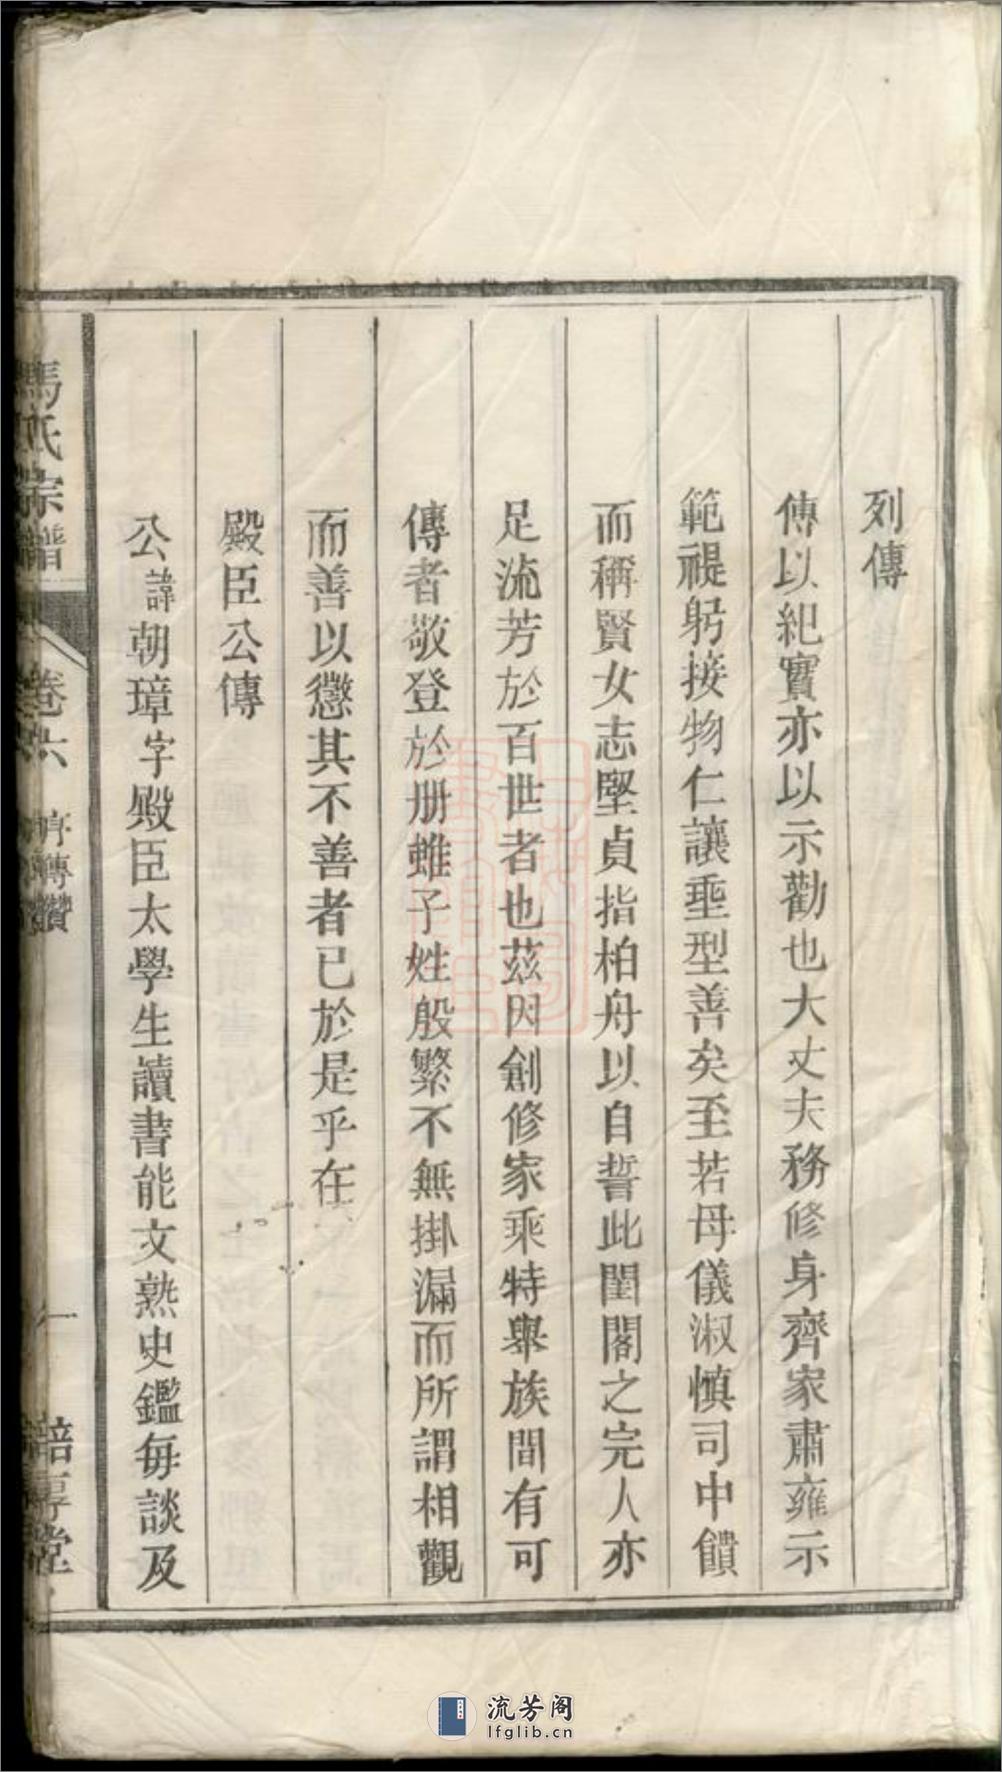 列傳
傳以紀實亦以示勸也大丈夫務修身齊家肅雍示
範禔躬接物仁讓垂型善矣至若母儀淑慎司中饋
而稱賢女志堅貞指柏舟以自誓此閨閣之完人亦
足流芳於百世者也茲因創修家乘特舉族間有可
傳者敬登於册雖子姓殷繁不無掛漏而所謂相觀
而善以懲其不善者已於是乎在
殿臣公傳
公諱朝璋字殿臣太學生讀書能文熟史鑑每談及
馬氏宗譜
卷六
序傳贊
一
堂
流芳阁
lfglib.cn